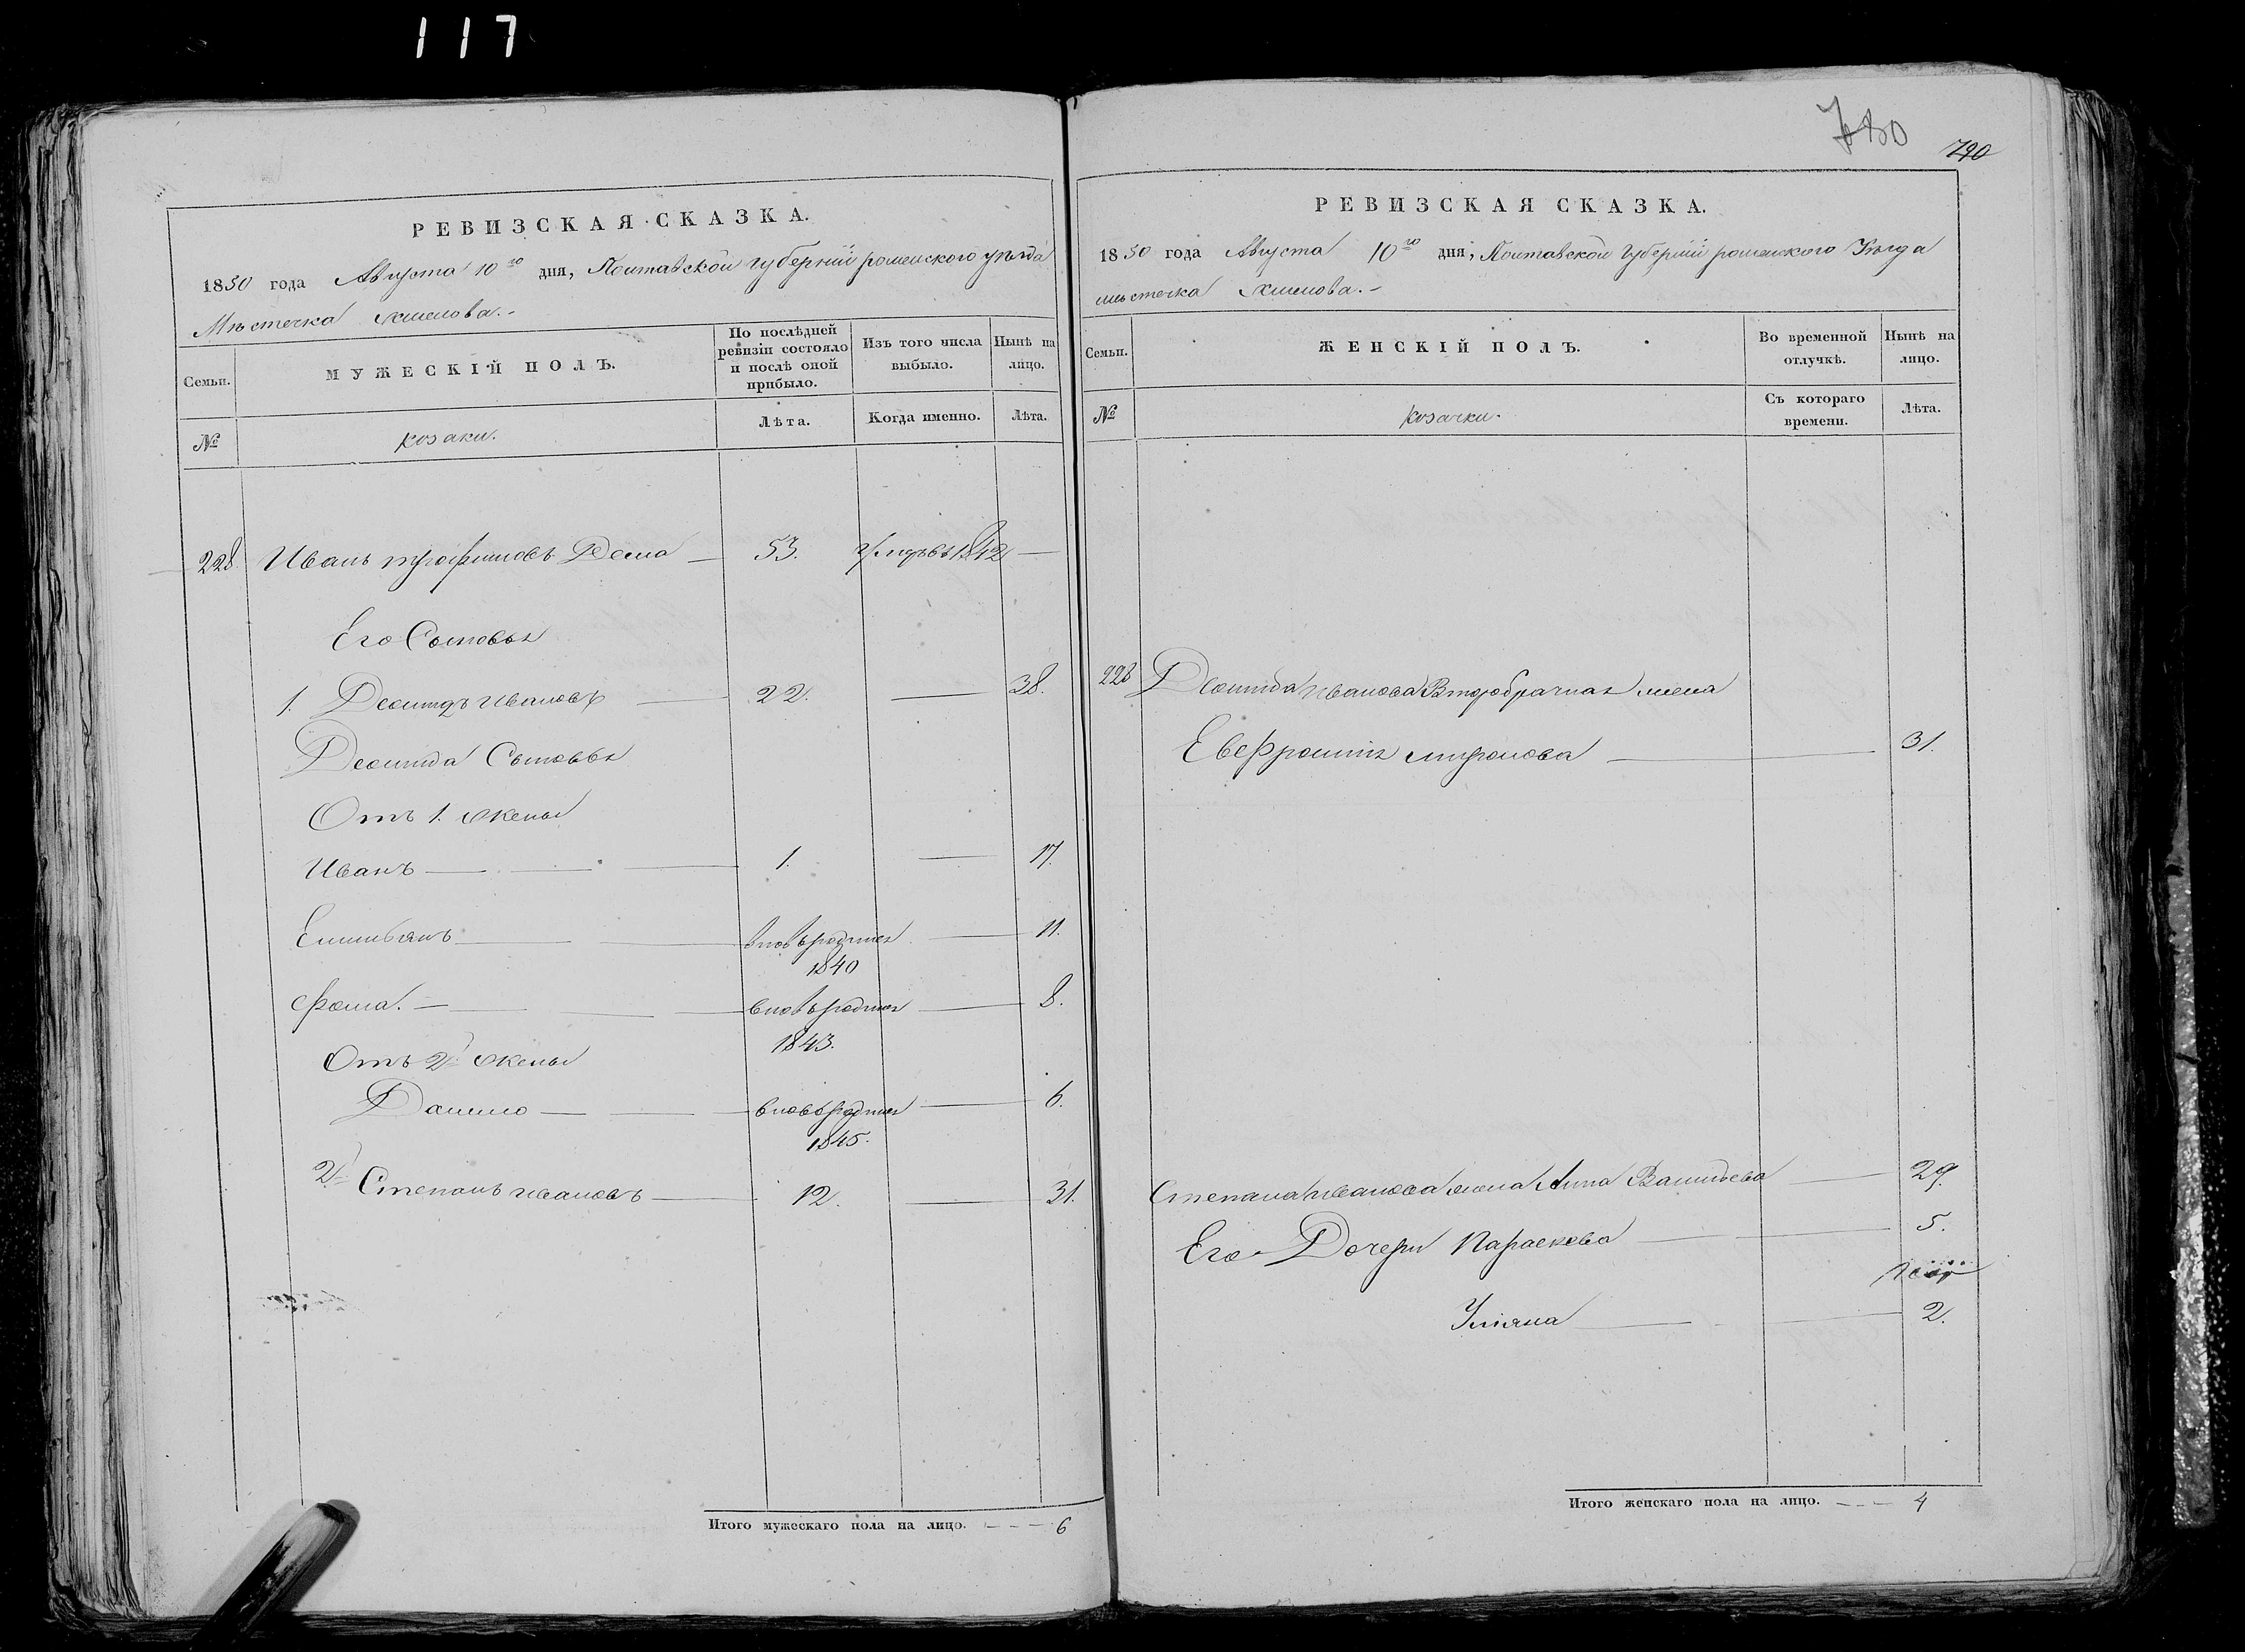 117
790
РЕВИЗСКАЯ СКАЗКА.
1850 года Августа 10го дня, Полтавской губернии роменского уезда
Местечка Хмелова.
Семьи.
МУЖЕСКІЙ ПОЛЪ.
По послѣдней ревизіи состояло и послѣ оной прибыло.
Изъ того числа выбыло.
Нынѣ на лицо.
№
козаки.
Лѣта.
Когда именно.
Лѣта.
228. Иванъ трофимовъ Дема — 53. умръ въ 1842 —
Его Сыновья
1. Леонидъ Ивановъ — 22. — 38.
Леонида Сыновья
Отъ 1. жены
Иванъ — 1. — 17.
Емильянъ — вновьродился 1840 — 11.
Фома. — вновьродился 1843. — 8.
Отъ 2й жены
Данило — вновьродился 1845. — 6.
2й Степанъ ивановъ — 12. — 31.
Итого мужескаго пола на лицо. - - - 6
РЕВИЗСКАЯ СКАЗКА.
1850 года Августа 10го дня, Полтавской Губернии роменского Уезда
местечка Хмелова. -
Семьи.
ЖЕНСКІЙ ПОЛЪ.
Во временной отлучкѣ.
Нынѣ на лицо.
№
козачки.
Съ котораго времени.
Лѣта.
228 Леонида иванова Второбрачная жена
Евфросинія миронова — 31.
Степана иванова жена Анна Васильева — 29.
Его Дочери Параскева — 5.
Уліяна — 2.
Итого женскаго пола на лицо. - - - 4